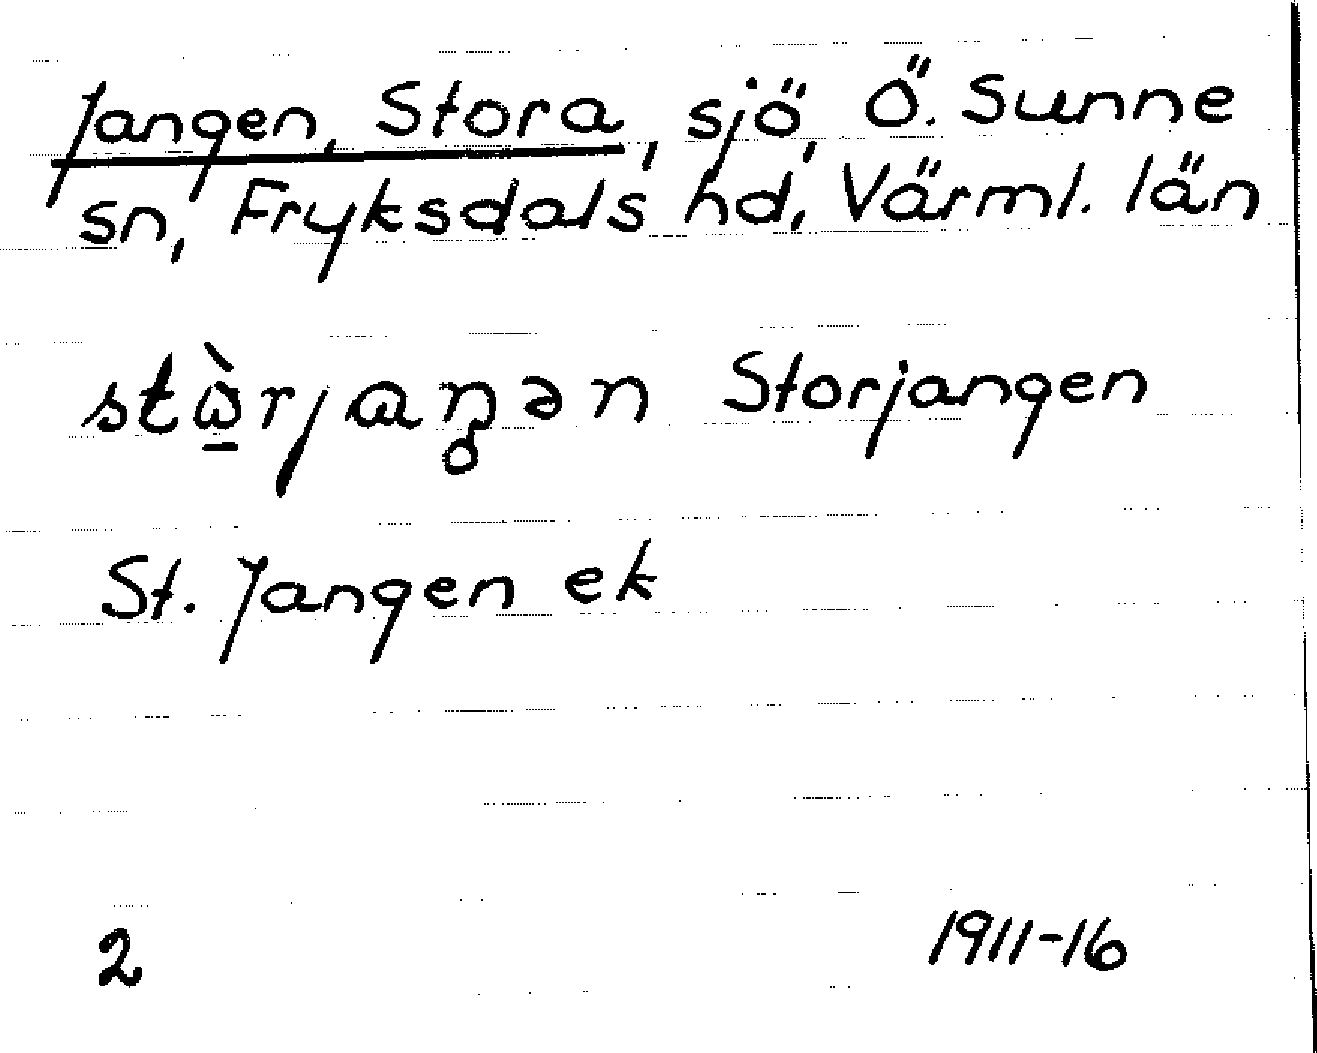 Jangen, Stora, sjö, Ö. Sunne
sn, Fryksdals hd, Värml. län
stὼ̱rjaŋən Storjangen
St. Jangen ek
2 1911-16